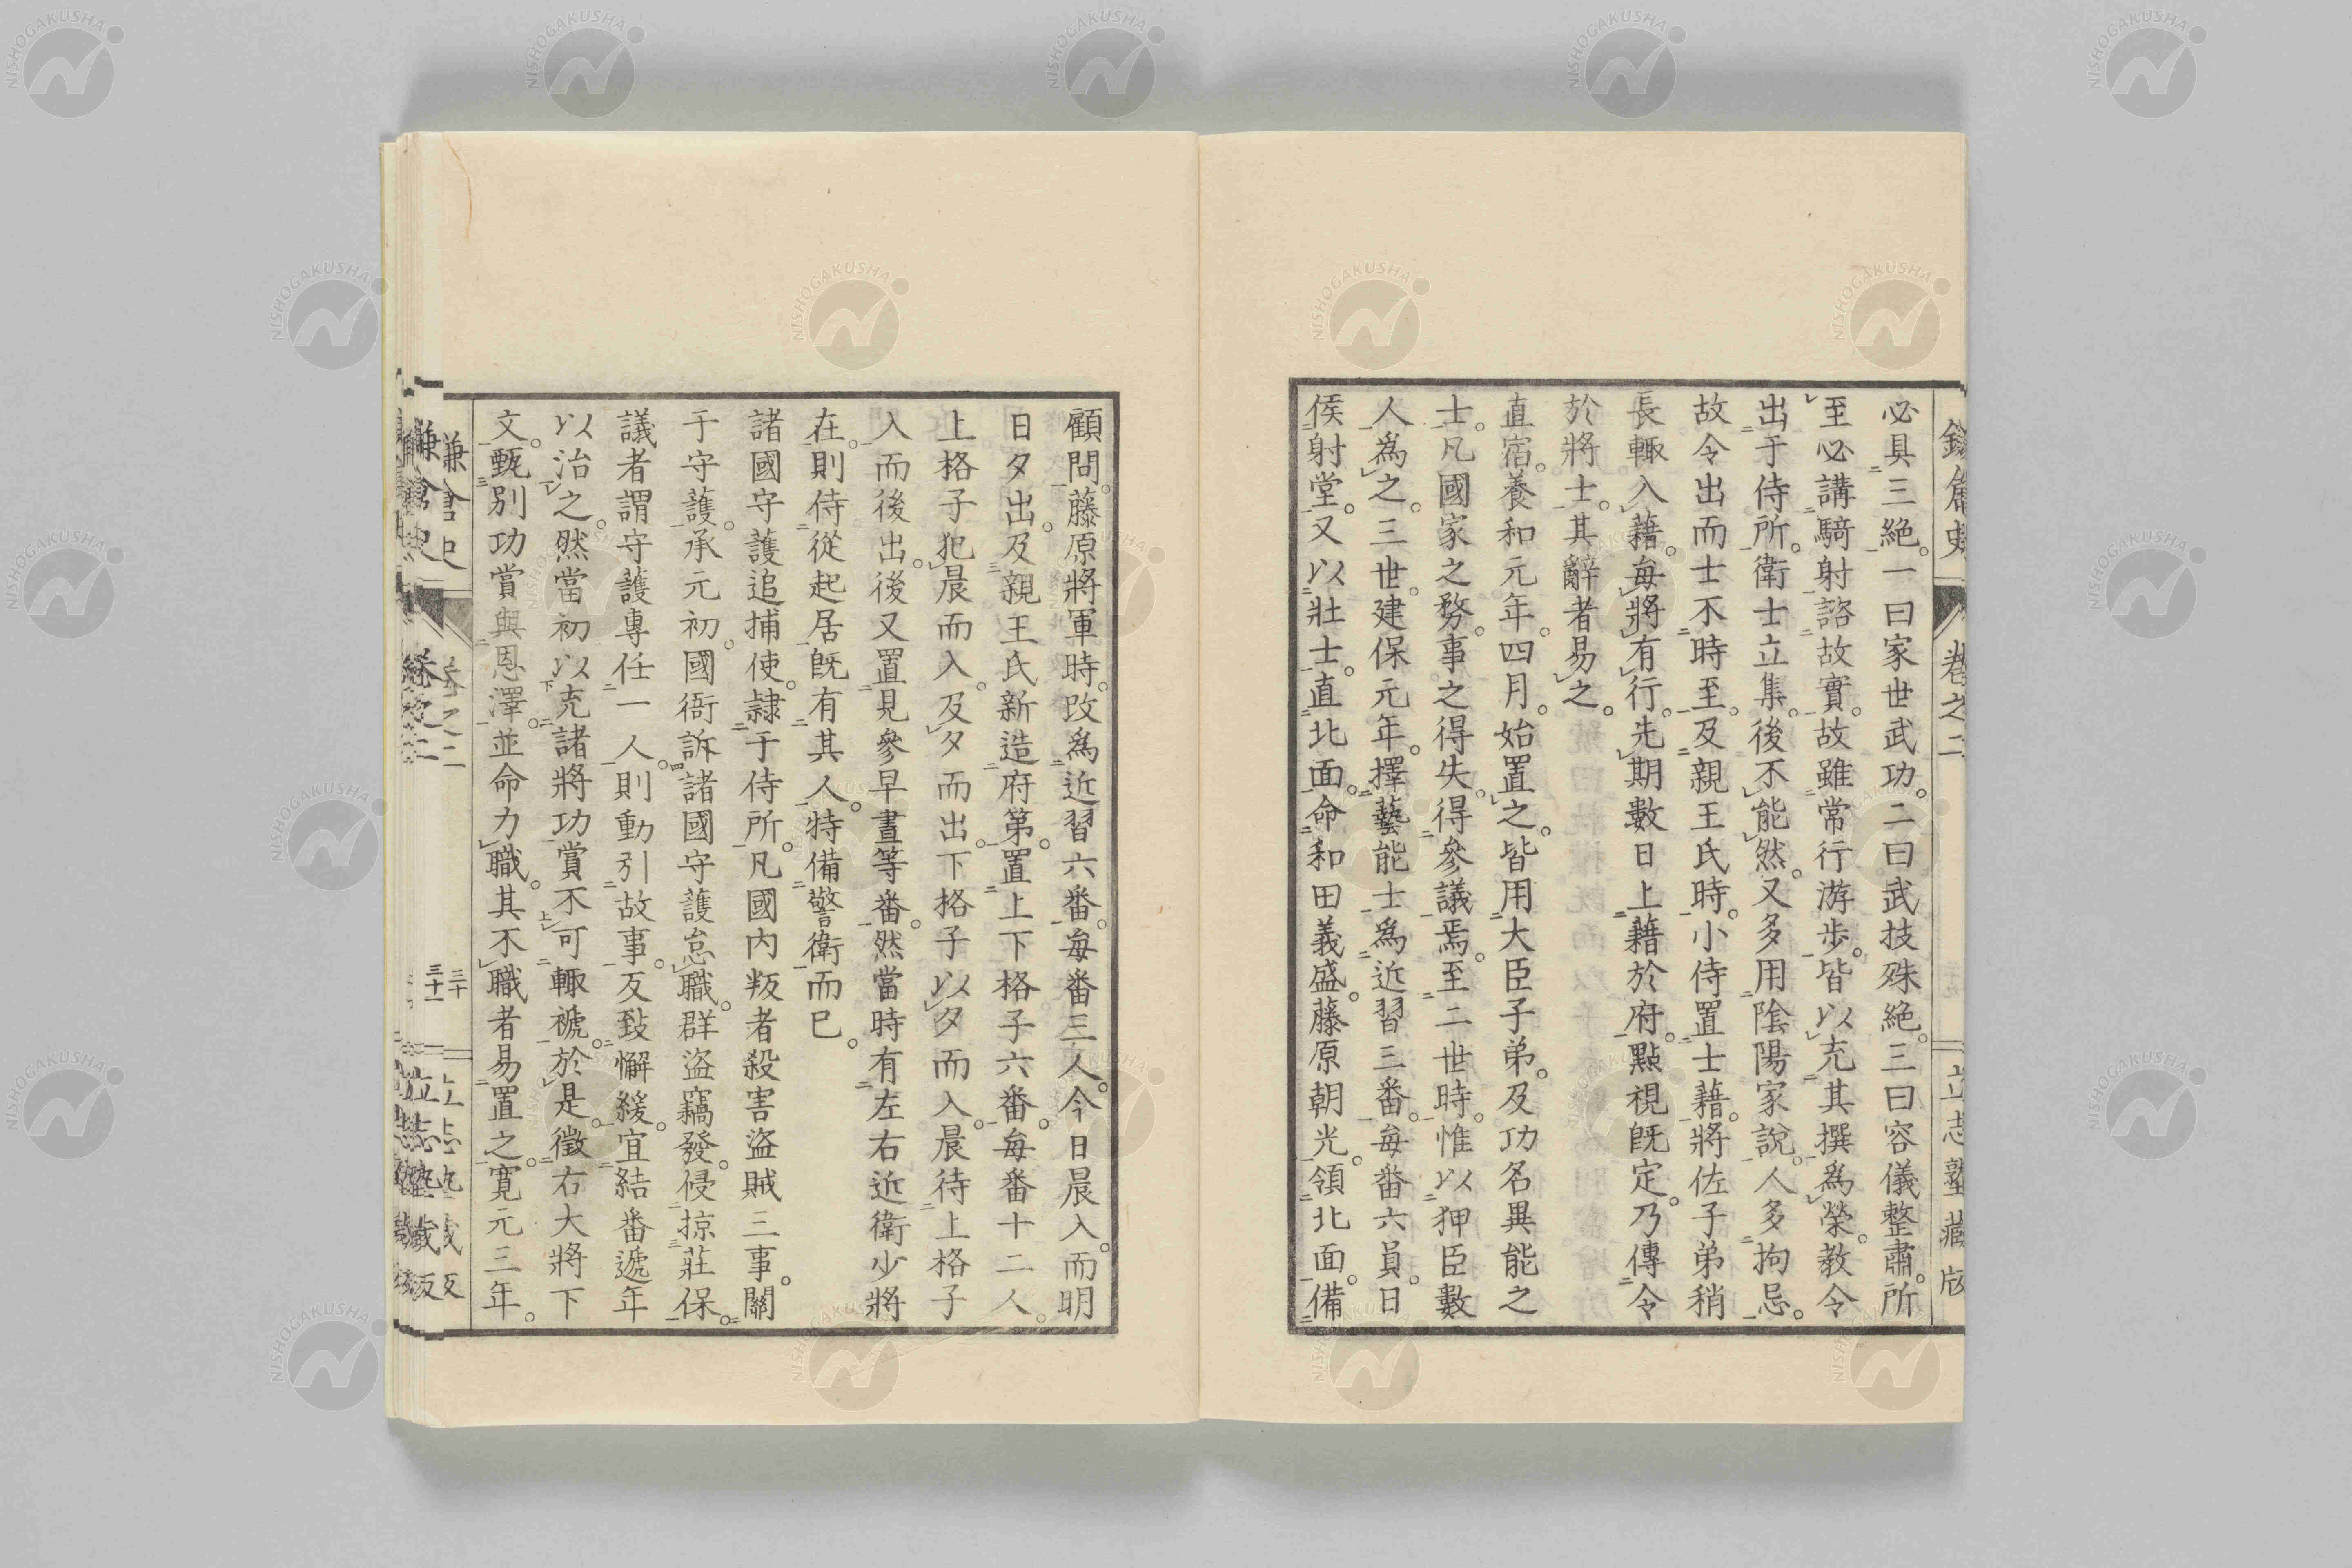 必具三絶。一曰家世武功。二曰武技殊絶。三曰容儀整肅。所
至必講騎射諮故實。故雖常行游步。皆以充其撰為榮。教令
出于侍所。衛士立集。後不能然。又多用陰陽家說。人多拘忌。
故令出而士不時至。及親王氏時。小侍置士藉。將佐子弟稍
長輙入藉。每將有行。先期數日上藉於府。點視既定。乃傳令
於將士。其辭者易之。
直宿。養和元年。四月。始置之。皆用大臣子弟。及功名異能之
士。凡國家之務。事之得失。得參議焉。至二世時。惟以狎臣數
人為之。三世。建保元年。擇藝能士為近習三番。每番六員。日
侯射堂。又以壯士。直北面。命和田義盛。藤原朝光。領北面。備
顧問。藤原將軍時。改為近習六番。每番三人。今日晨入。而明
日夕出。及親王氏新造府第。置上下格子六番。每番十二人。
上格子犯晨而入。及夕而出。下格子以夕而入。晨待上格子
入而後出。後又置見參早晝等番。然當時有左右近衛少將
在。則侍從起居既有其人。特備警衛而已。
諸國守護追捕使。隷于侍所。凡國內叛者殺害盜賊三事。關
于守護。承元初。國衙訴諸國守護怠職。群盜竊發。侵掠莊保。
議者謂守護專任一人。則動引故事。反致懈緩。宜結番遞年
以治之。然當初以充諸將功賞不可輙褫。於是。徵右大將下
文。甄別功賞與恩澤。並命力職。其不職者易置之。寬元三年。
卷之二
三十
NISHOGAKUSHA